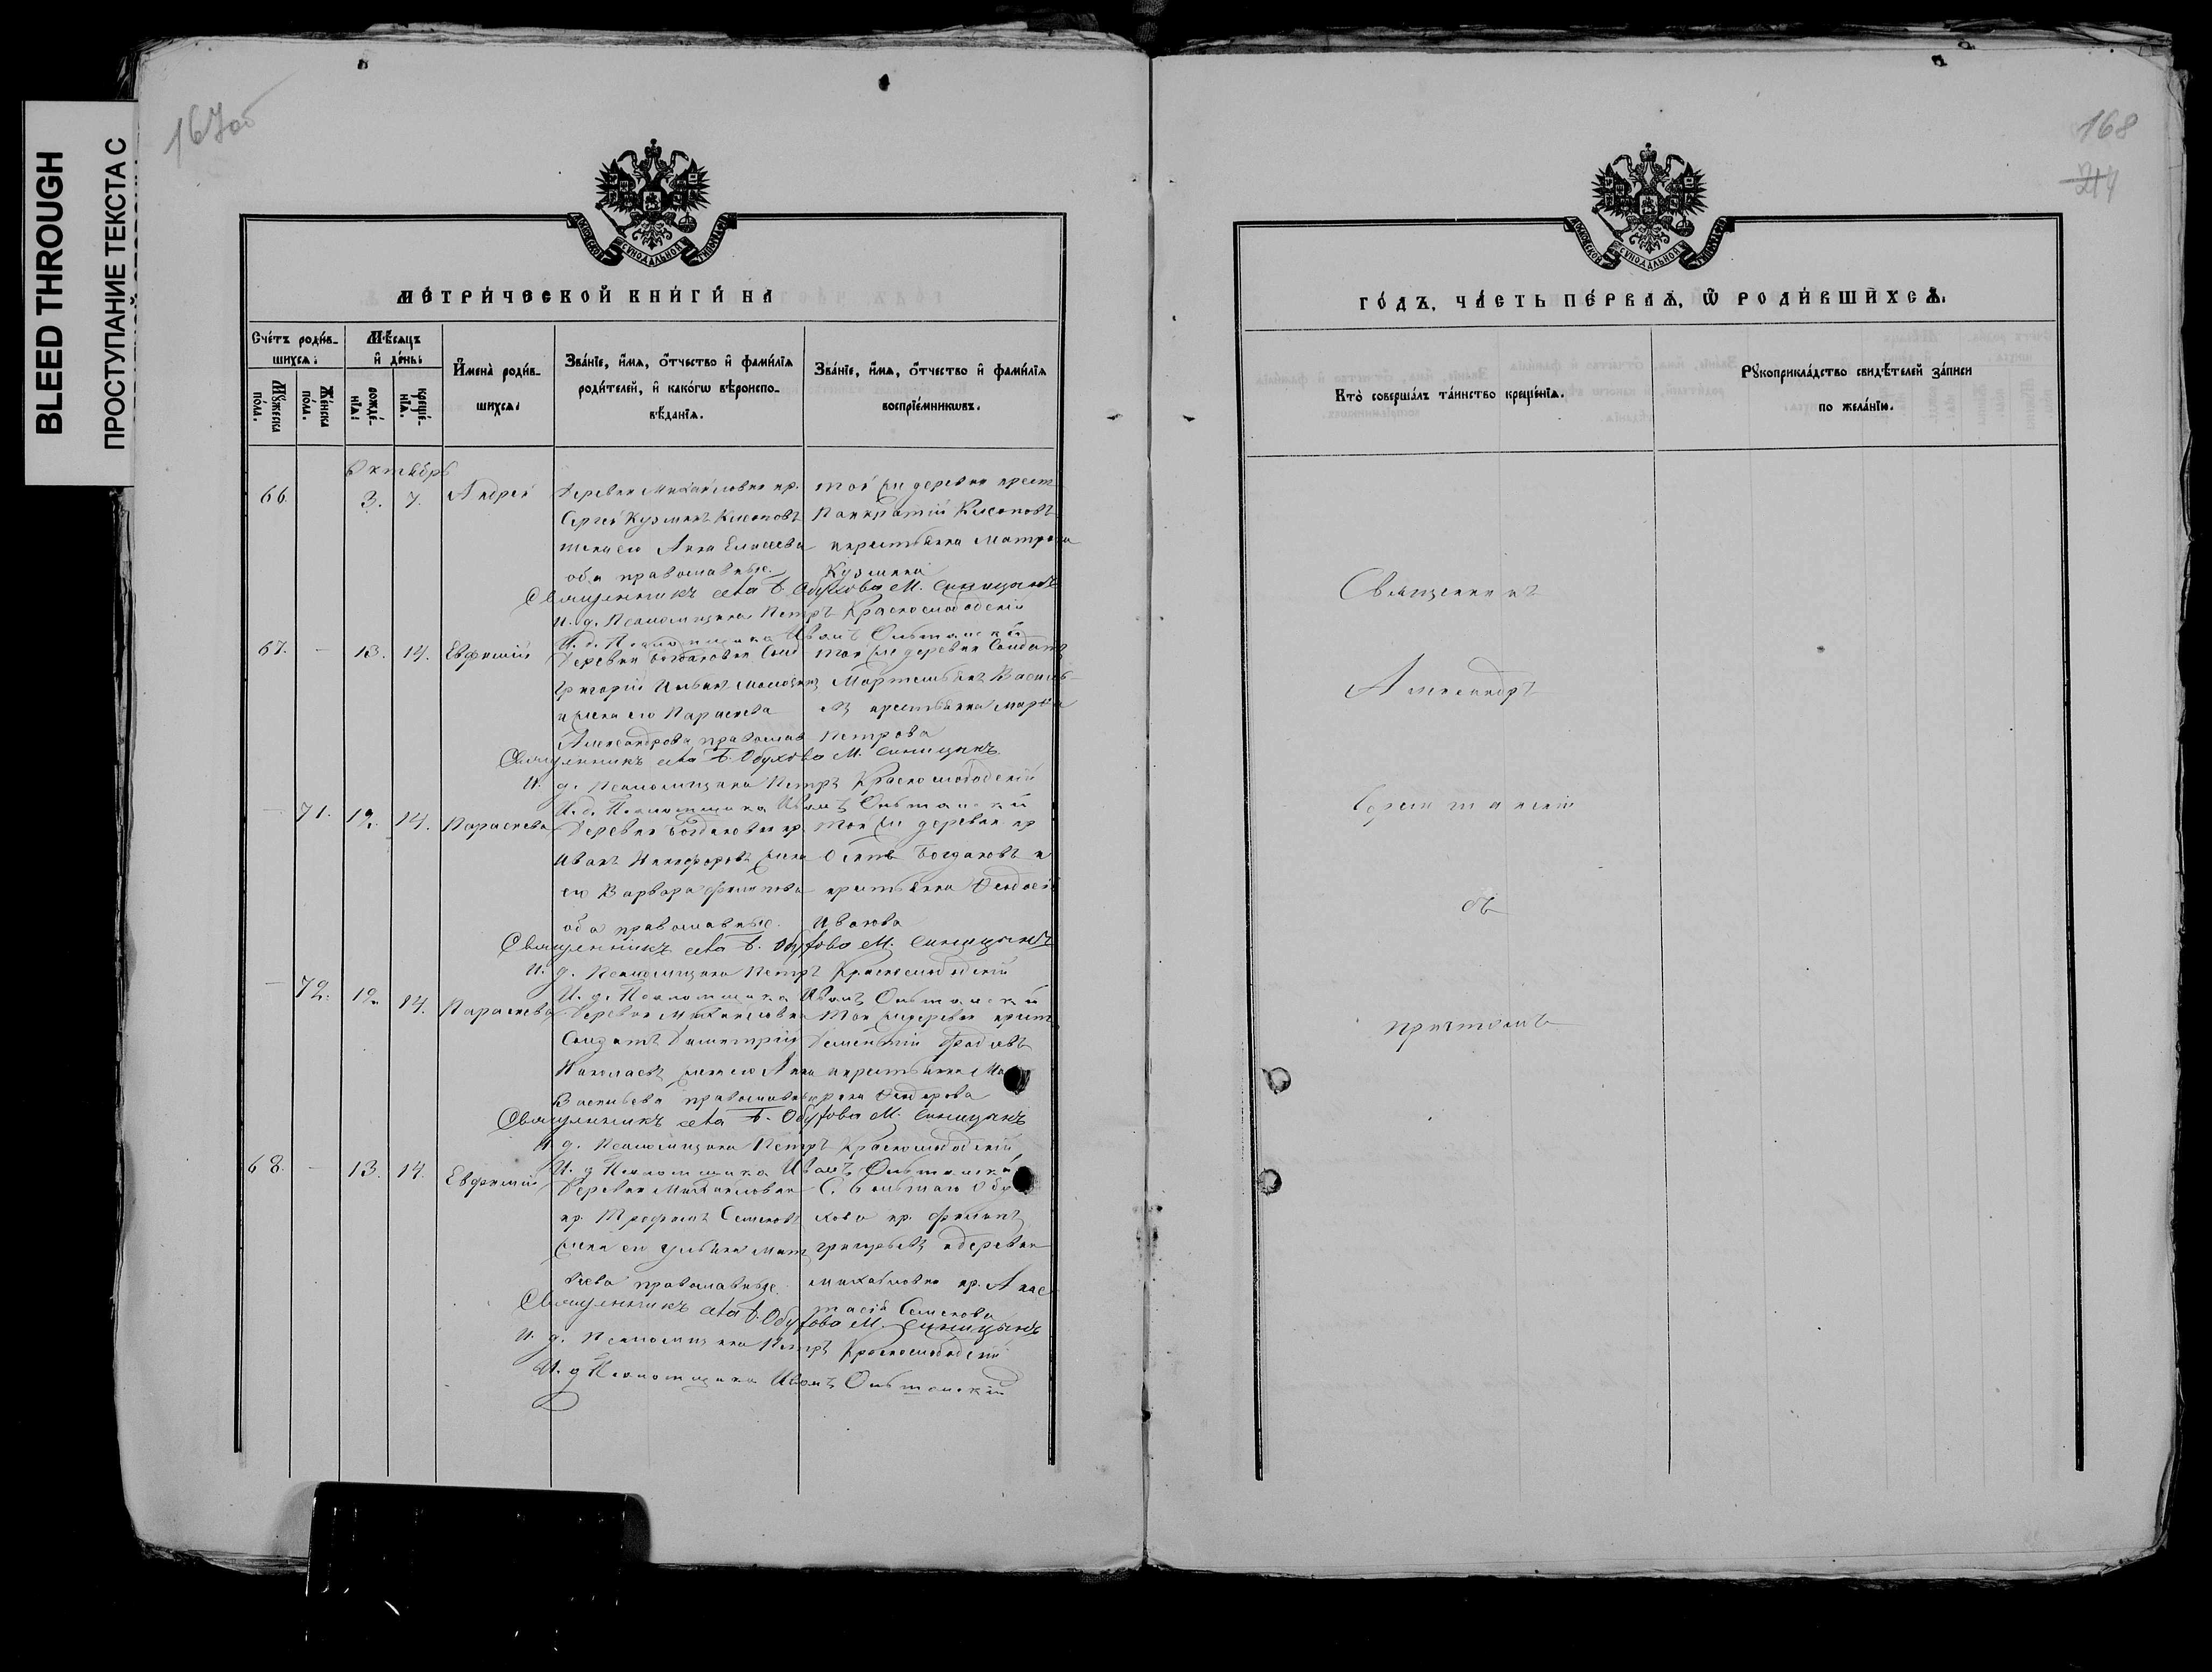 BLEED THROUGH
ПРОСТУПАНИЕ ТЕКСТА С
167об
МЕТРИЧЕСКОЙ КНИГИ НА
Счетъ родив-
шихся:
Мужеска пола.
Женска пола.
Месяцъ
и день:
рожде-
нія:
креще-
нія:
Имена родив-
шихся:
Званіе, имя, отчество и фамилія
родителей, и какогѡ вѣроиспо-
вѣданія.
Званіе, имя, отчество и фамилія
воспріемникѡвъ.
Октябрь
66. 3. 7. Андрей
Деревни Михайловки кр.
Сергей Кузминъ
жена его Анна Елисеева
оба православные.
той же деревни крест
Панкратій
и крестьянка Матрона
Кузмина
Священникъ села Б. Обухова М. Синицынъ
И. д. Псаломщика Петръ Краснослободскій
И. д. Псаломщика Иванъ
67. - 13. 14. Евфимій
Деревни Богдановки Солд
Григорій
и жена его Параскева
Александрова православ
той же деревни Солдатъ
Василь-
евъ крестьянка Марія
Петрова
Священникъ села Б. Обухова М. Синицынъ
И. д. Псаломщика Петръ Краснослободскій
И. д. Псаломщика Иванъ
- 71. 12. 14. Параскева
Деревни Богдановки кр.
Иванъ Никифоровъ жена
его Варвара Филипова
оба православные.
той же деревни кр
Осипъ Богдановъ и
крестьянка Феодосія
Иванова
Священникъ села Б. Обухова М. Синицынъ
И. д. Псаломщика Петръ Краснослободскій
И. д. Псаломщика Иванъ
- 72. 12. 14. Параскева
Деревни Михайловки
Солдатъ Димитрій
Николаевъ жена его Анна
Васильева православные
той же деревни крест
Дементій
и крестьянка
Феодорова
Священникъ села Б. Обухова М. Синицынъ
И. д. Псаломщика Петръ Краснослободскій
И. д. Псаломщика Иванъ
68. - 13. 14. Евфимій
Деревни Михайловки
кр. Трофимъ Семеновъ
жена его Ульяна Мат
феева православные.
С. Большаго Обу
хова кр. Филипъ
Григорьевъ и деревни
Михайловки кр. Анас
тасія Семенова
Священникъ села Б. Обухова М. Синицынъ
И. д. Псаломщика Петръ Краснослободскій
И. д. Псаломщика Иванъ
168
214
ГОДЪ, ЧАСТЬ ПЕРВАЯ, Ѿ РОДИВШИХСЯ.
Кто совершалъ таинство крещенія.
Рукоприкладство свидѣтелей записи
по желанію.
Священникъ
Александръ
съ
причтомъ